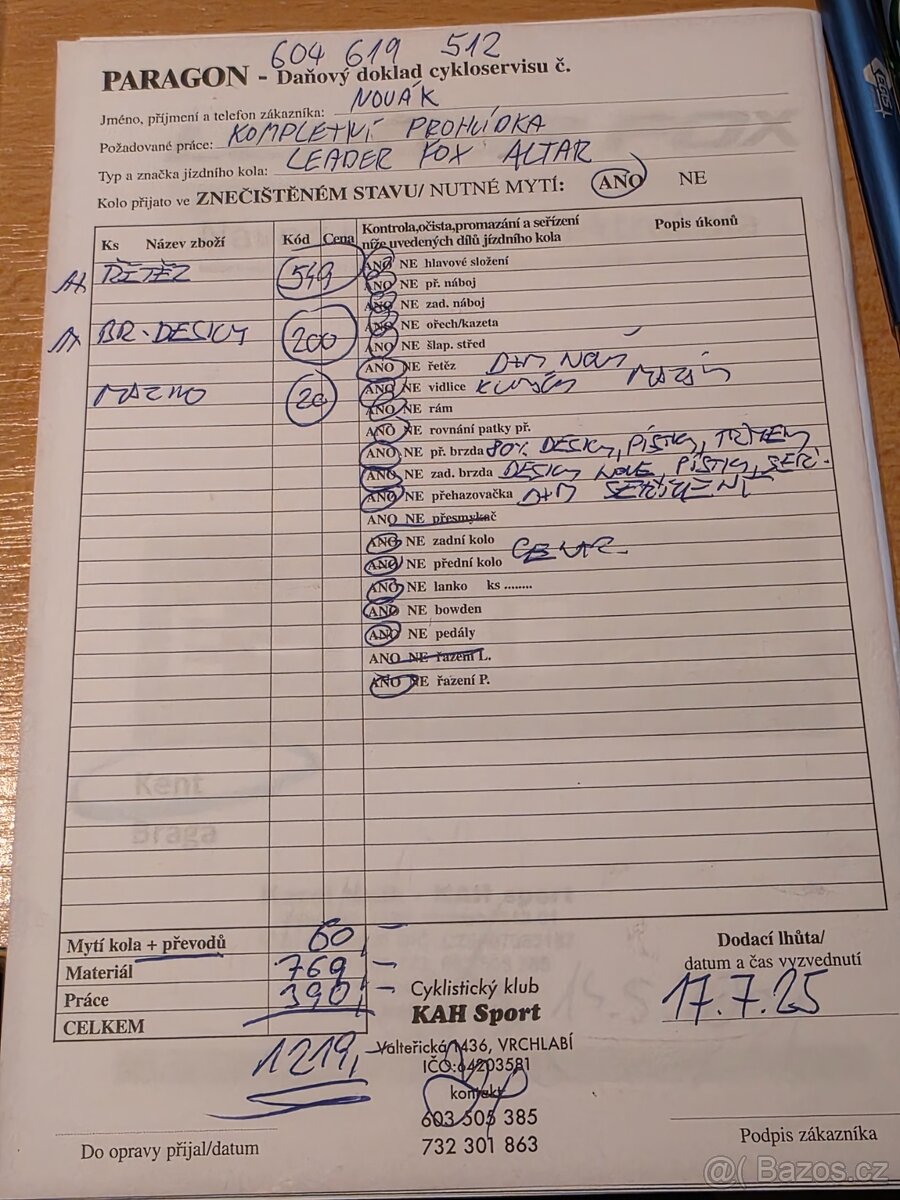 604 619 512
PARAGON - Daňový doklad cykloservisu č.
Jméno, příjmení a telefon zákazníka: NOVÁK
Požadované práce: KOMPLETNÍ PROHLÍDKA
Typ a značka jízdního kola: LEADER FOX ALTAR
Kolo přijato ve ZNEČIŠTĚNÉM STAVU/ NUTNÉ MYTÍ: ANO NE
Ks Název zboží Kód Cena Kontrola,očista,promazání a seřízení níže uvedených dílů jízdního kola Popis úkonů
1x ŘETĚZ 549 ANO NE hlavové složení
ANO NE př. náboj
ANO NE zad. náboj
1x BR. DESKY 200 ANO NE ořech/kazeta
ANO NE šlap. střed
ANO NE řetěz D+M NOVÝ
MAZIVO 20 ANO NE vidlice MAZÁNÍ
ANO NE rám
ANO NE rovnání patky př.
ANO NE př. brzda 80% DESKY, PÍSTKY,
ANO NE zad. brzda DESKY NOVÉ, PÍSTKY, SEŘ.
ANO NE přehazovačka D+M SEŘÍZENÍ
ANO NE přesmykač
ANO NE zadní kolo
ANO NE přední kolo CENTR.
ANO NE lanko ks ........
ANO NE bowden
ANO NE pedály
ANO NE řazení L.
ANO NE řazení P.
Kent
Braga
Mytí kola + převodů 60,-
Materiál 769,-
Práce 390,-
CELKEM
1219,-
Dodací lhůta/
datum a čas vyzvednutí
17.7.25
Cyklistický klub
KAH Sport
Valteřická 1436, VRCHLABÍ
IČO:64203581
kontakt
603 505 385
732 301 863
Do opravy přijal/datum
Podpis zákazníka
@( Bazos.cz